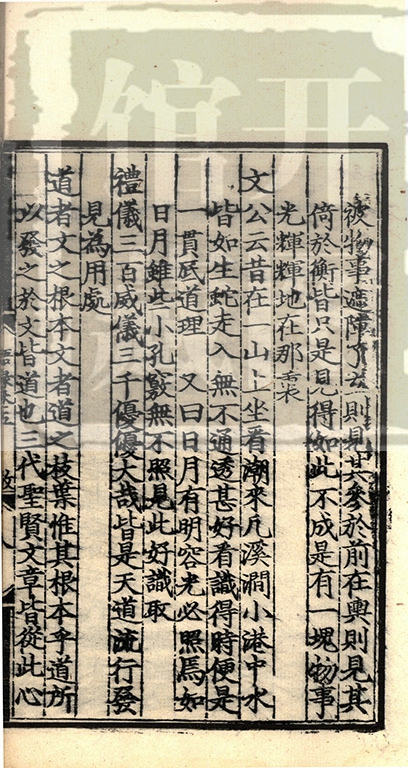 被物事遮障了立則見其參於前在輿則見其
倚於衡皆只是見得如此不成是有一塊物事
光輝輝地在那裏
文公云昔在一山上坐看潮來凡溪澗小港中水
皆如生蛇走入無不通透甚好看識得時便是
一貫底道理 又曰日月有明容光必照焉如
日月雖些小孔竅無不照見此好識取
禮儀三百威儀三千優優大哉皆是天道流行發
見為用處
道者文之根本文者道之枝葉惟其根本乎道所
以發之於文皆道也三代聖賢文章皆從此心